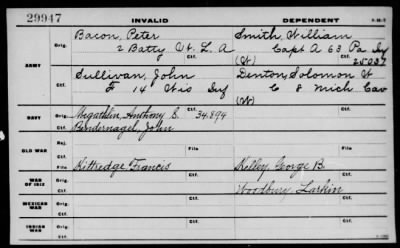 29947
INVALID
DEPENDENT
ARMY
Orig.
Bacon, Peter
2 Batty Vt. L. A
Smith, William
Capt A 63 Pa Inf
(W) 25037
Ctf.
Orig.
Sullivan, John
F 14 Wis Inf
Denton, Solomon W
C 8 Mich Cav
(W)
Ctf.
NAVY
Orig.
Megathlin, Anthony C.
Ctf.
34,894
Orig.
Ctf.
Bendernagel, John
OLD WAR
Rej.
Ctf.
File
File
WAR OF 1812
Orig.
Kittredge Francis
Kelley George B.
Ctf.
Woodbury Larkin
MEXICAN WAR
Orig.
Ctf.
INDIAN WAR
Orig.
Ctf.